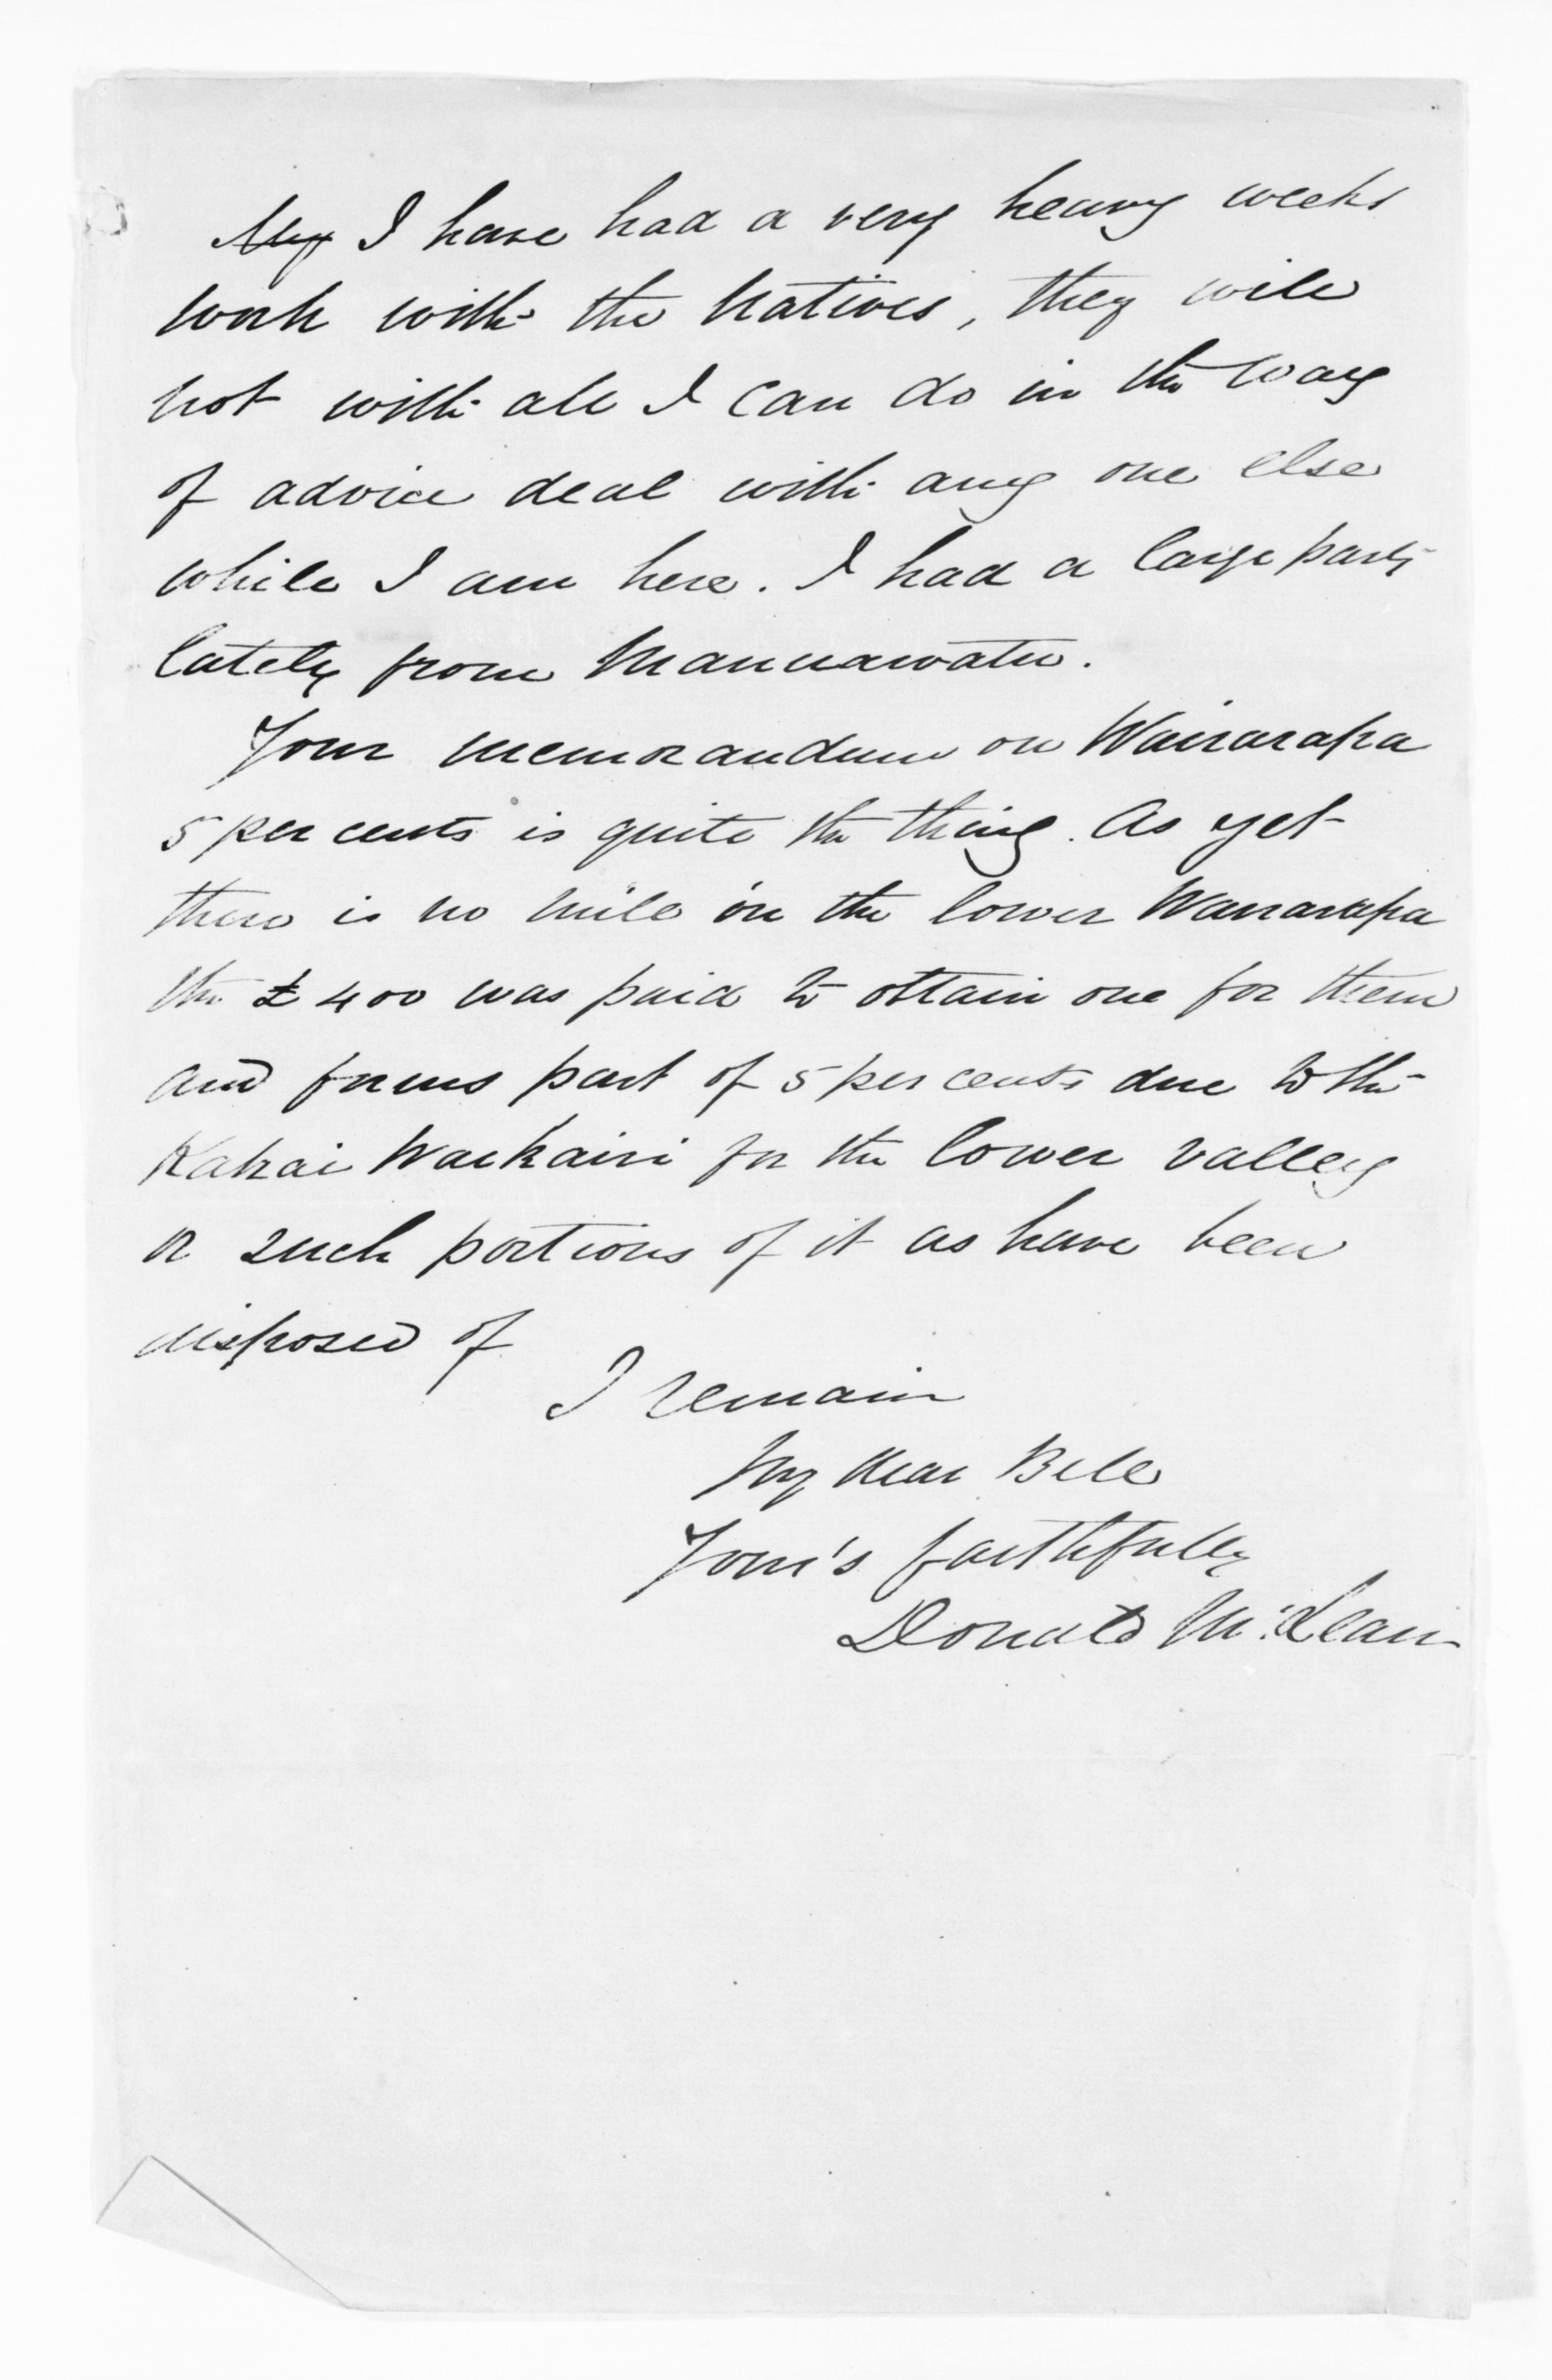 I have had a very heavy weeks
work with the Natives, they will
not with all I can do in the way
of advice deal with any one else
while I am here. I had a large party
lately from Mannawatu.
Your memorandum on Wairarapa
5 per cents is quite the thing. As yet
there is no mill in the lower Wararapa
the £400 was paid to obtain one for them
and forms part of 5 per cents due to the
for the lower valley
or such portions of it as have been
disposed of
I remain
My dear Bell
Your's faithfully
Donald McLean